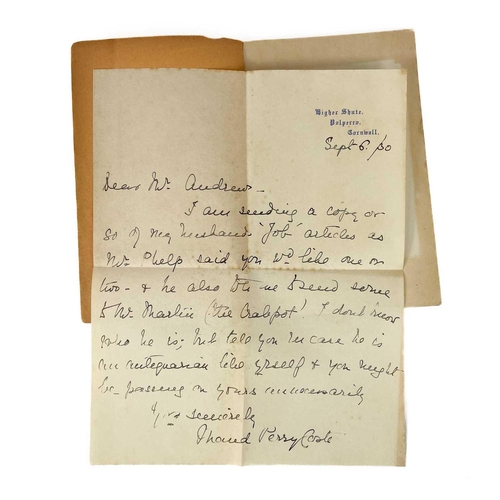 Higher Shute.
Polperro.
Cornwall.
Sept 6. /30
Dear Mr. Andrew –
I am sending a copy or
so of my husband's 'Job' articles as
Mr. Phelp said you wd. like one or
two – & he also me to send some
to Mr. Martin ('the Crabpot'). I dont know
who he is; but tell you in case he is
an antiquarian like yrself & you might
be passing on yours unnecessarily
Yrs sincerely
Maud Perry Coste